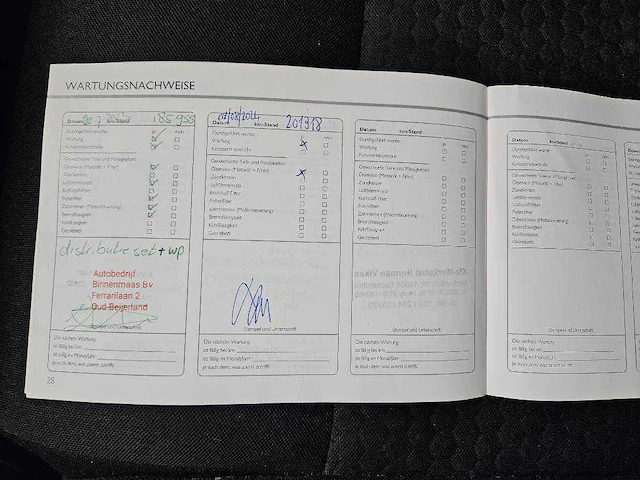 WARTUNGSNACHWEISE
Datum km-Stand 185955
Durchgeführt wurde: ja nein
Wartung
Karosseriekontrolle
Gewechselte Teile und Flüssigkeiten:
Ölservice (Motoröl + Filter)
Zündkerzen
Luftfiltereinsatz
Kraftstofffilter
Pollenfilter
Zahnriemen (Motorsteuerung)
Bremsflüssigkeit
Kühlflüssigkeit
Getriebeöl
distributie set + wp
Autobedrijf
Binnenmaas Bv
Ferrarilaan 2
Oud-Beijerland
Stempel und Unterschrift
Die nächste Wartung
ist fällig bei km
ist fällig im Monat/Jahr
je nach dem, was zuerst zutrifft.
28
Datum km-Stand
Durchgeführt wurde: ja nein
Wartung
Karosseriekontrolle
Gewechselte Teile und Flüssigkeiten:
Ölservice (Motoröl + Filter)
Zündkerzen
Luftfiltereinsatz
Kraftstofffilter
Pollenfilter
Zahnriemen (Motorsteuerung)
Bremsflüssigkeit
Kühlflüssigkeit
Getriebeöl
Stempel und Unterschrift
Die nächste Wartung
ist fällig bei km
ist fällig im Monat/Jahr
je nach dem, was zuerst zutrifft.
Datum km-Stand
Durchgeführt wurde: ja nein
Wartung
Karosseriekontrolle
Gewechselte Teile und Flüssigkeiten:
Ölservice (Motoröl + Filter)
Zündkerzen
Luftfiltereinsatz
Kraftstofffilter
Pollenfilter
Zahnriemen (Motorsteuerung)
Bremsflüssigkeit
Kühlflüssigkeit
Getriebeöl
Stempel und Unterschrift
Die nächste Wartung
ist fällig bei km
ist fällig im Monat/Jahr
je nach dem, was zuerst zutrifft.
Datum km-Stand
Durchgeführt wurde: ja nein
Wartung
Karosseriekontrolle
Gewechselte Teile und Flüssigkeiten:
Ölservice (Motoröl + Filter)
Zündkerzen
Luftfiltereinsatz
Kraftstofffilter
Pollenfilter
Zahnriemen (Motorsteuerung)
Bremsflüssigkeit
Kühlflüssigkeit
Getriebeöl
Stempel und Unterschrift
Die nächste Wartung
ist fällig bei km
ist fällig im Monat/Jahr
je nach dem, was zuerst zutrifft.